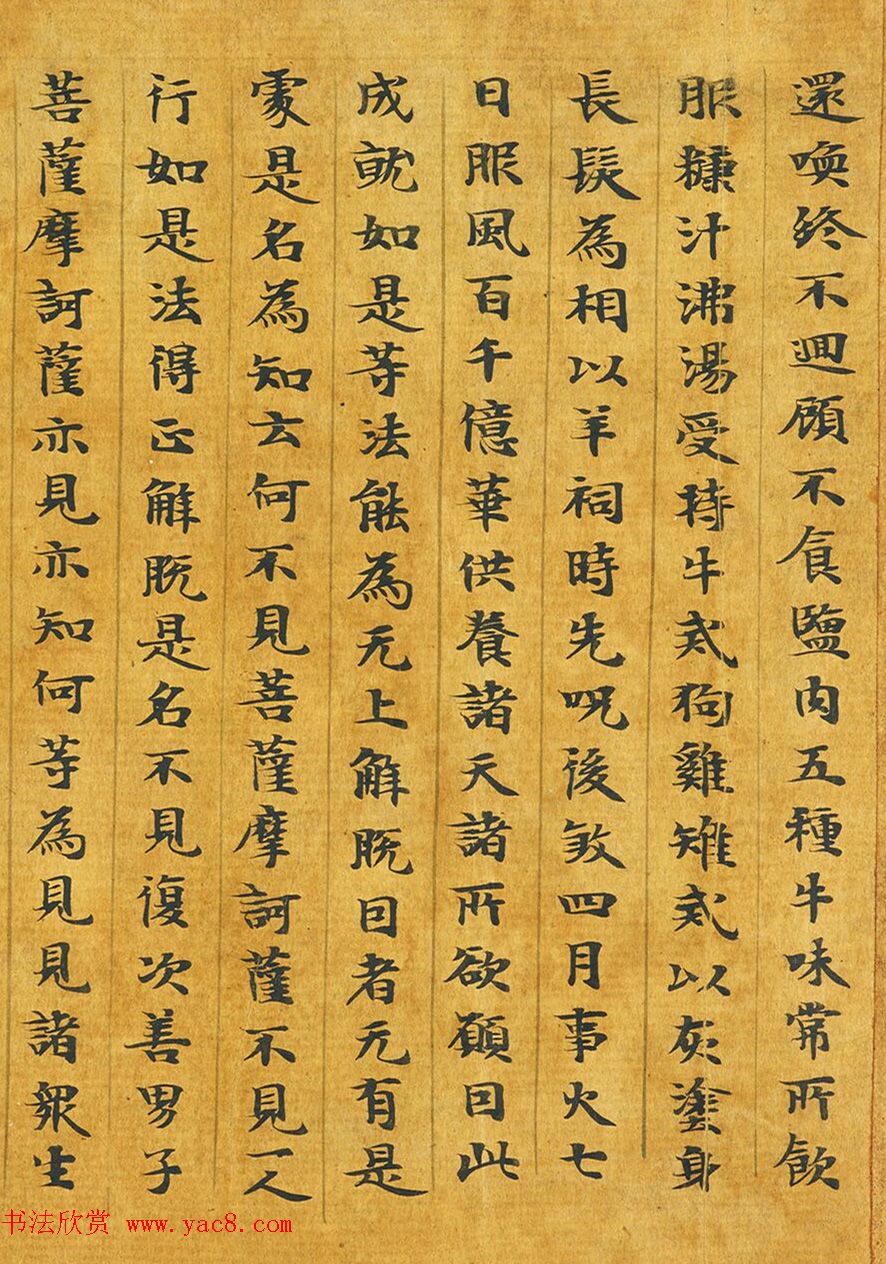 還喚終不迴顧不食鹽肉五種牛味常所飲
服糠汁沸湯受持牛戒狗雞雉戒以灰塗身
長髮為相以羊祠時先呪後煞四月事火七
日服風百千億華供養諸天諸所欲願因此
成就如是等法能為无上解脫因者无有是
處是名為知云何不見菩薩摩訶薩不見一人
行如是法得正解脫是名不見復次善男子
菩薩摩訶薩亦見亦知何等為見見諸眾生
书法欣赏 www.yac8.com